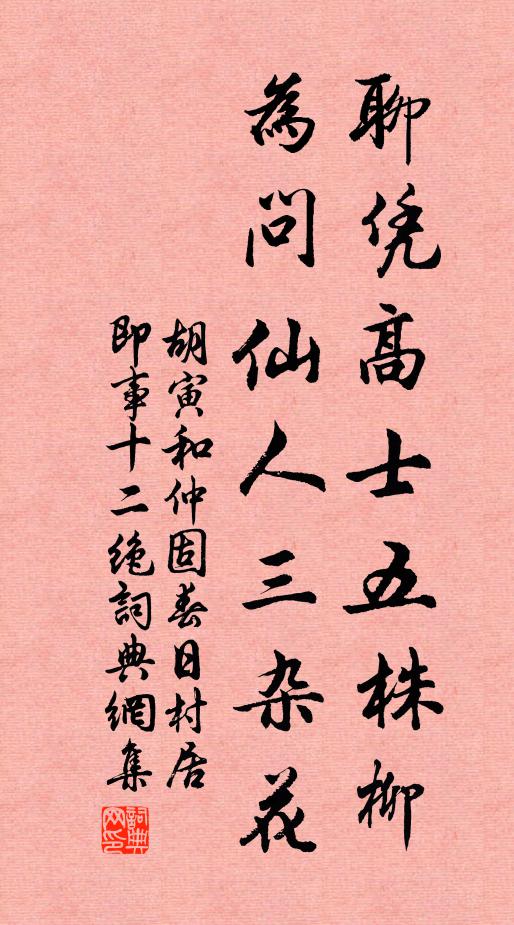 聊凭高士五株柳
為問仙人三朵花
胡寅和仲固春日村居
即事十二绝詞典網集
詞典网印